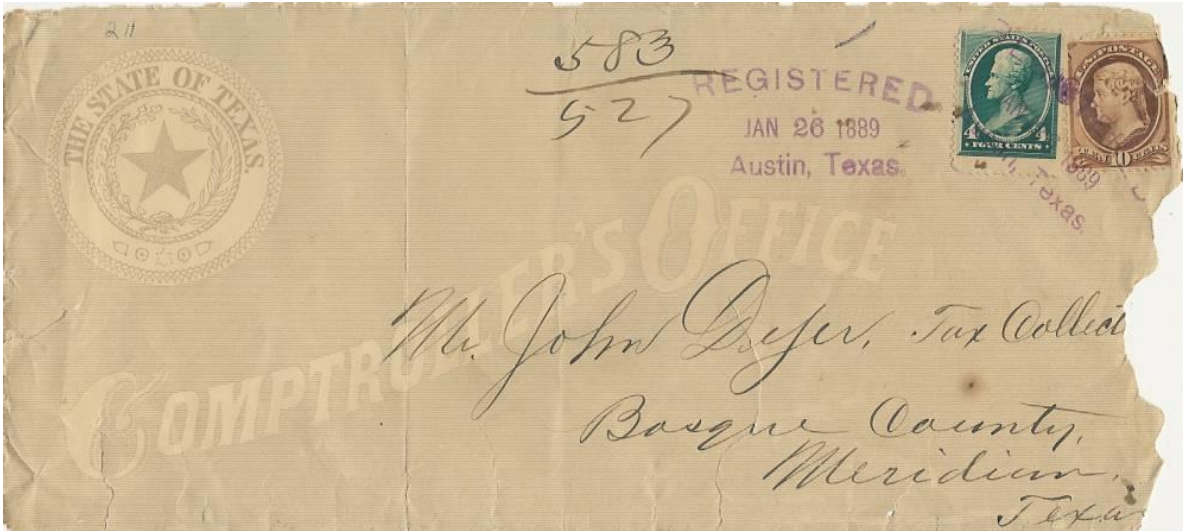 211
THE STATE OF TEXAS.
583
527
REGISTERED
JAN 26 1889
Austin, Texas.
UNITED STATES POSTAGE
4 4
FOUR CENTS
U.S. POSTAGE
10
CENTS
1889
Texas.
COMPTROLLER'S OFFICE
Mr. John Dyer, Tax Collect
Bosque County,
Meridian,
Texa